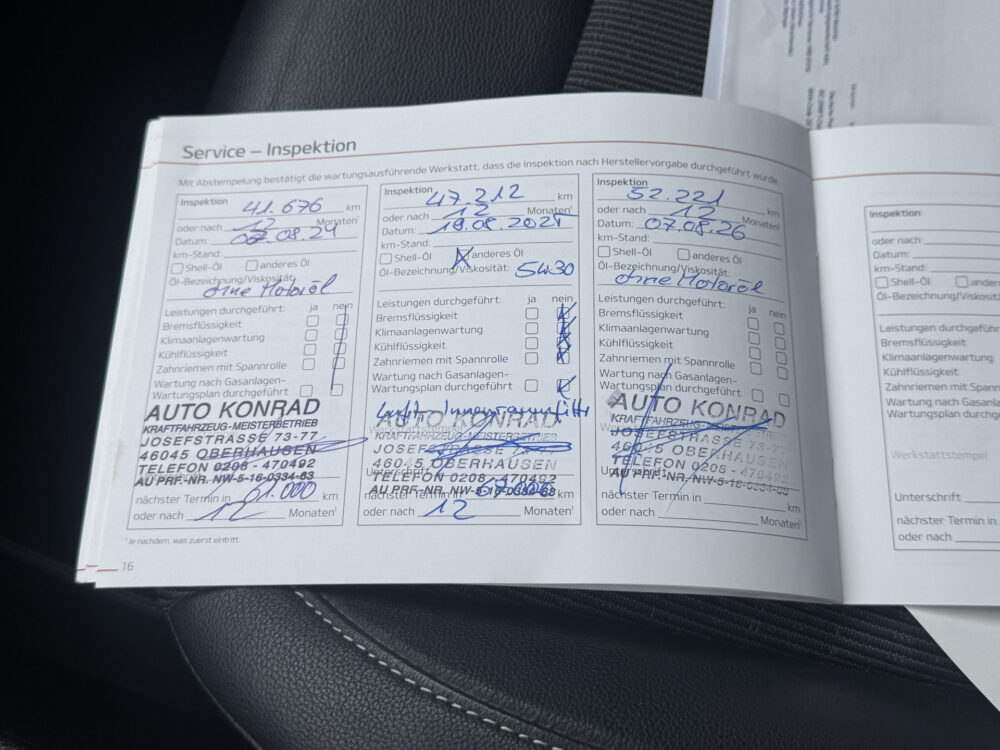 Service – Inspektion
Mit Abstempelung bestätigt die wartungsausführende Werkstatt, dass die Inspektion nach Herstellervorgabe durchgeführt wurde.
Inspektion 41.676 km
oder nach 12 Monaten¹
Datum: 02.08.24
km-Stand:
Shell-Öl anderes Öl
Öl-Bezeichnung/Viskosität:
ohne Motoröl
Leistungen durchgeführt: ja nein
Bremsflüssigkeit
Klimaanlagenwartung
Kühlflüssigkeit
Zahnriemen mit Spannrolle
Wartung nach Gasanlagen-
Wartungsplan durchgeführt
AUTO KONRAD
KRAFTFAHRZEUG-MEISTERBETRIEB
JOSEFSTRASSE 73-77
46045 OBERHAUSEN
TELEFON 0208 - 470492
AU PRF.-NR. NW-5-16-0334-63
nächster Termin in 61.000 km
oder nach 12 Monaten¹
¹Je nachdem, was zuerst eintritt.
16
Inspektion 47.212 km
oder nach 12 Monaten¹
Datum: 19.08.2025
km-Stand:
Shell-Öl X anderes Öl
Öl-Bezeichnung/Viskosität: 5W30
Leistungen durchgeführt: ja nein
Bremsflüssigkeit
Klimaanlagenwartung
Kühlflüssigkeit
Zahnriemen mit Spannrolle
Wartung nach Gasanlagen-
Wartungsplan durchgeführt
Luft- Innenraumfilter
AUTO KONRAD
Werkstattstempel
KRAFTFAHRZEUG-MEISTERBETRIEB
JOSEFSTRASSE 73-77
46045 OBERHAUSEN
Unterschrift
TELEFON 0208 - 470492
AU PRF.-NR. NW-5-16-0334-63
nächster Termin in km
oder nach 12 Monaten¹
Inspektion 52.221 km
oder nach 12 Monaten¹
Datum: 07.08.26
km-Stand:
Shell-Öl anderes Öl
Öl-Bezeichnung/Viskosität:
ohne Motoröl
Leistungen durchgeführt: ja nein
Bremsflüssigkeit
Klimaanlagenwartung
Kühlflüssigkeit
Zahnriemen mit Spannrolle
Wartung nach Gasanlagen-
Wartungsplan durchgeführt
AUTO KONRAD
KRAFTFAHRZEUG-MEISTERBETRIEB
JOSEFSTRASSE 73-77
46045 OBERHAUSEN
TELEFON 0208 - 470492
Unterschrift
AU PRF.-NR. NW-5-16-0334-63
nächster Termin in km
oder nach Monaten¹
Inspektion
oder nach
Datum:
km-Stand:
Shell-Öl anderes
Öl-Bezeichnung/Viskosi
Leistungen durchgeführ
Bremsflüssigkeit
Klimaanlagenwartung
Kühlflüssigkeit
Zahnriemen mit Spann
Wartung nach Gasanla
Wartungsplan durchgef
Werkstattstempel
Unterschrift
nächster Termin in
oder nach